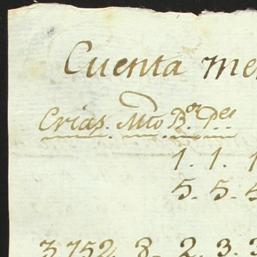 Cuenta me
Crías. Mto Bor. Pes
1. 1. 1
5. 5. 5
3,752 8. 2. 3. 3